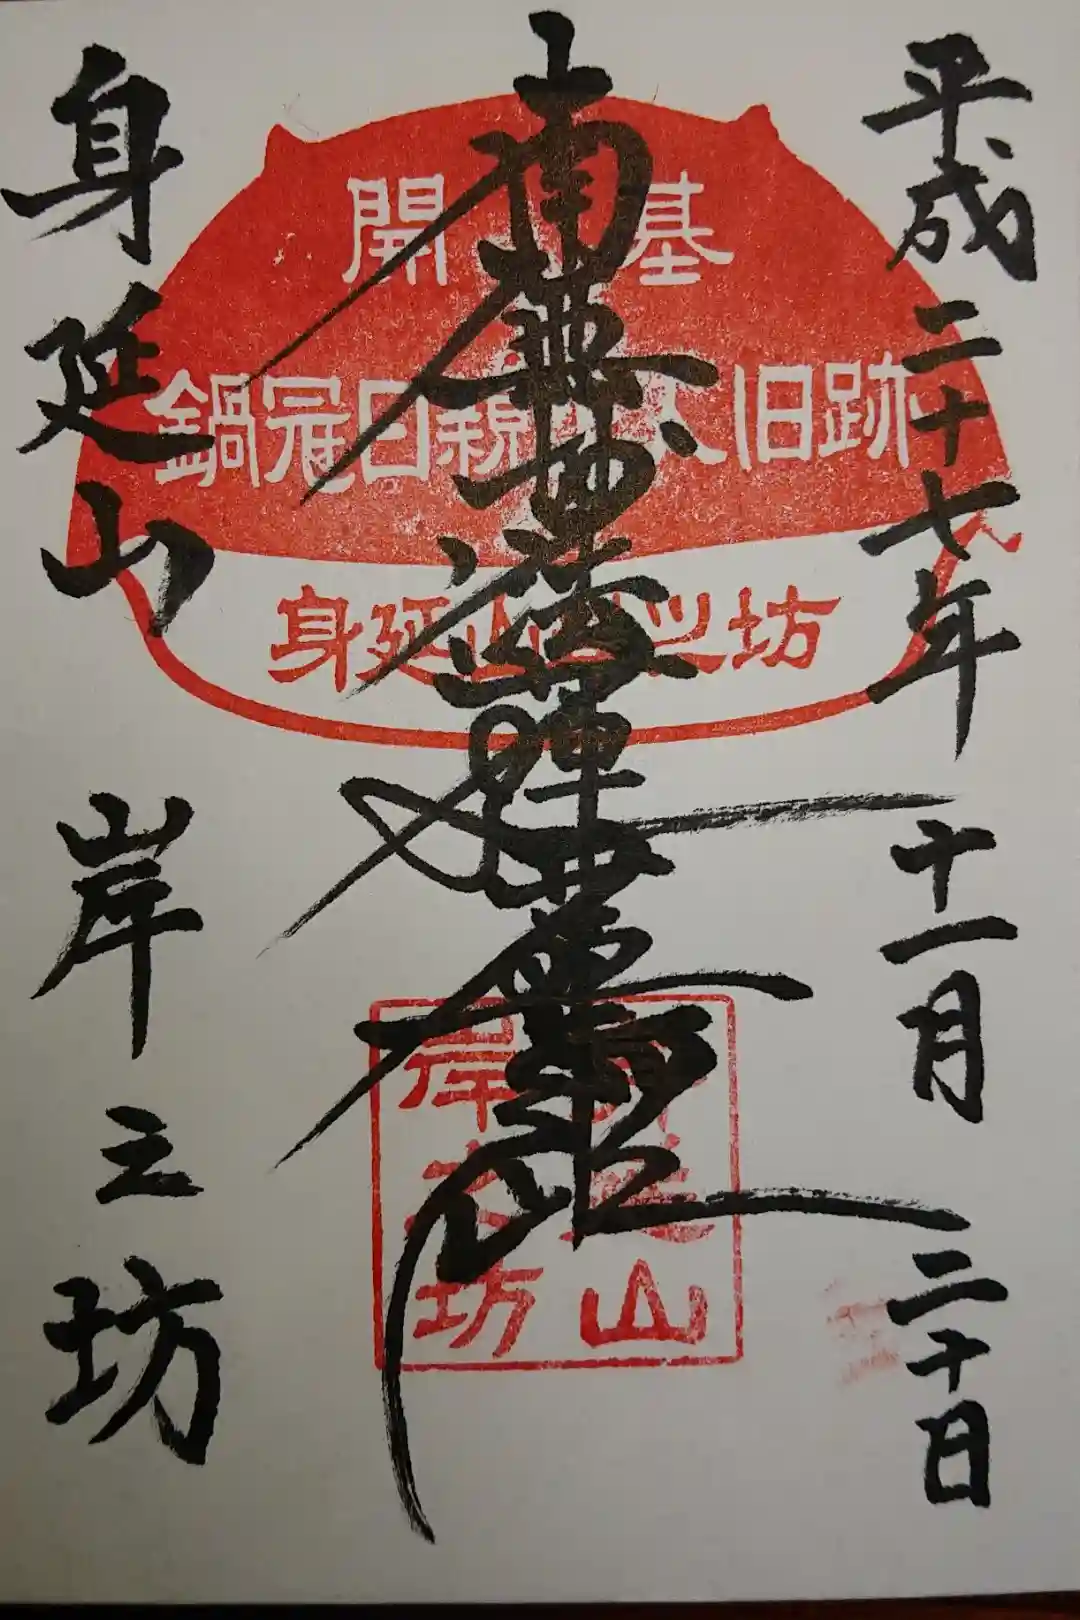 平成二十七年十一月二十日
南無妙法蓮華経
身延山 岸之坊
開基
鍋冠日親大 旧跡
身延山岸之坊
身延山
岸之坊